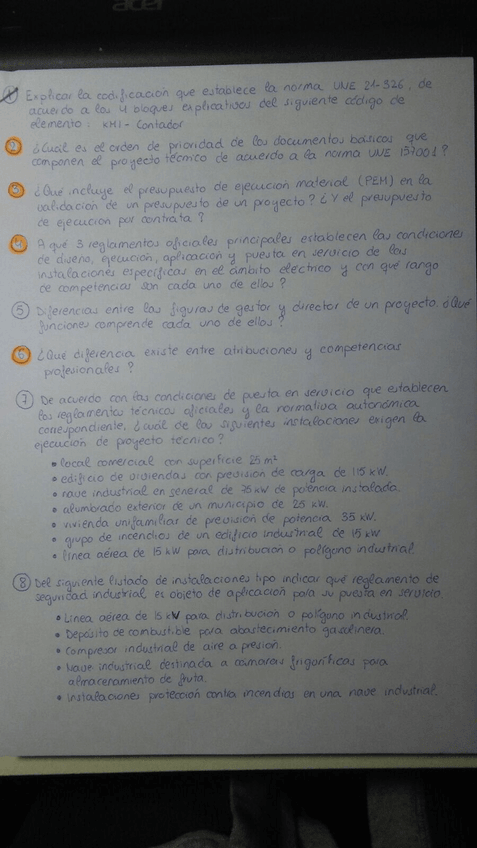 acer
1 Explicar la codificación que establece la norma UNE 21-326, de
acuerdo a los 4 bloques explicativos del siguiente código de
elemento: KM1 - Contador
2 ¿Cuál es el orden de prioridad de los documentos básicos que
componen el proyecto técnico de acuerdo a la norma UNE 157001?
3 ¿Qué incluye el presupuesto de ejecución material (PEM) en la
validación de un presupuesto de un proyecto? ¿Y el presupuesto
de ejecución por contrata?
4 A qué 3 reglamentos oficiales principales establecen las condiciones
de diseño, ejecución, aplicación y puesta en servicio de las
instalaciones específicas en el ámbito eléctrico y con qué rango
de competencias son cada uno de ellos?
5 Diferencias entre las figuras de gestor y director de un proyecto. ¿Qué
funciones comprende cada uno de ellos?
6 ¿Qué diferencia existe entre atribuciones y competencias
profesionales?
7 De acuerdo con las condiciones de puesta en servicio que establecen
los reglamentos técnicos oficiales y la normativa autonómica
correspondiente, ¿cuál de las siguientes instalaciones exigen la
ejecución de proyecto técnico?
• local comercial con superficie 25 m²
• edificio de viviendas con previsión de carga de 115 kW.
• nave industrial en general de 25 kW de potencia instalada.
• alumbrado exterior de un municipio de 25 kW.
• vivienda unifamiliar de previsión de potencia 35 kW.
• grupo de incendios de un edificio industrial de 15 kW
• línea aérea de 15 kW para distribución a polígono industrial.
8 Del siguiente listado de instalaciones tipo indicar qué reglamento de
seguridad industrial es objeto de aplicación para su puesta en servicio.
• Línea aérea de 15 kV para distribución a polígono industrial.
• Depósito de combustible para abastecimiento gasolinera.
• Compresor industrial de aire a presión.
• Nave industrial destinada a cámaras frigoríficas para
almacenamiento de fruta.
• Instalaciones protección contra incendios en una nave industrial.